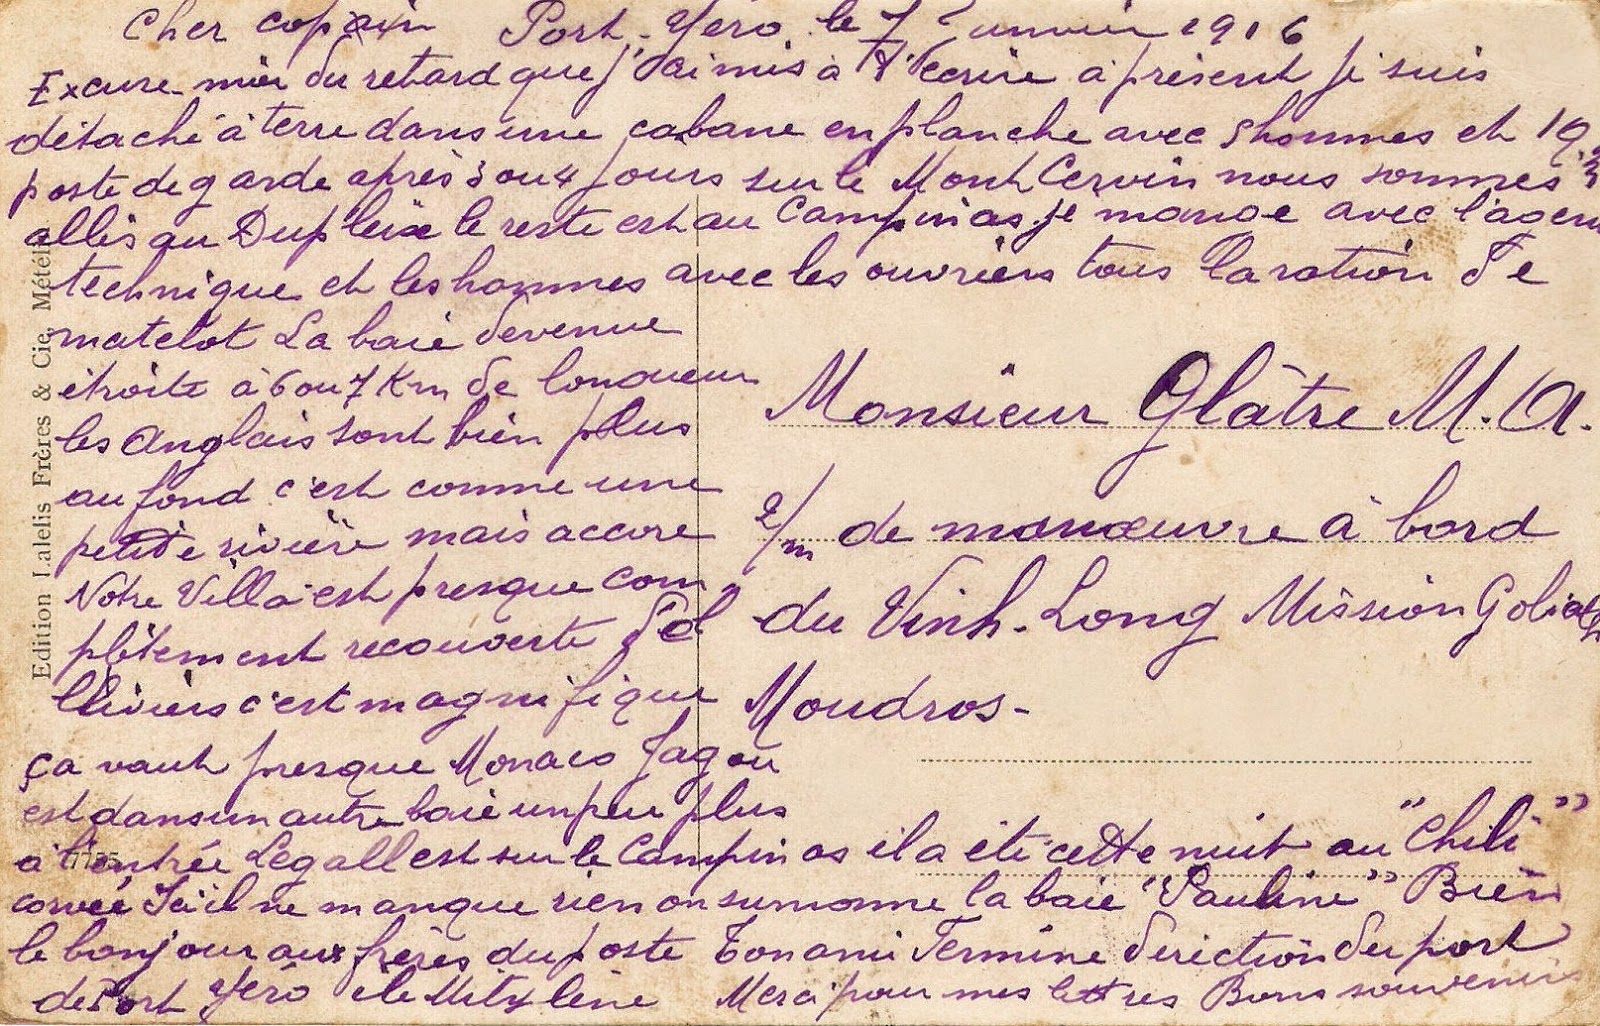 Cher copain Port-Yero le 7 Janvier 1916
Excuse-mier du retard que j'ai mis à t'écrire à présent je suis
détaché à terre dans une cabane en planche avec 5 hommes et 19
poste de garde après 3 ou 4 jours sur le Mont Cervin nous sommes
allés au Dupleix le reste est au Campinas je mange avec l'agent
technique et les hommes avec les ouvriers tous la ration de
matelot La baie devenue
étroite à 6 ou 7 Km de longueur
les Anglais sont bien plus
au fond c'est comme une
petite rivière mais accore
Notre Villa est presque com
plètement recouverte d'o
lliviers c'est magnifique
ça vaut presque Monaco Jagou
est dans un autre baie un peu plus
à l'entrée Legall est sur le Campinas il a été cette nuit au "Chili"
corvée Ici il ne manque rien on surnomme la baie "Pauline" Bien
le bonjour aux frères du poste Ton ami Termine direction du port
de Port Yéro île Mitylène Merci pour mes lettres Bons souvenirs
Monsieur Glâtre M. A.
2/m de manœuvre à bord
du Vinh-Long Mission Goliath
Moudros-
Edition Lalelis Frères & Cie, Métélin
7755